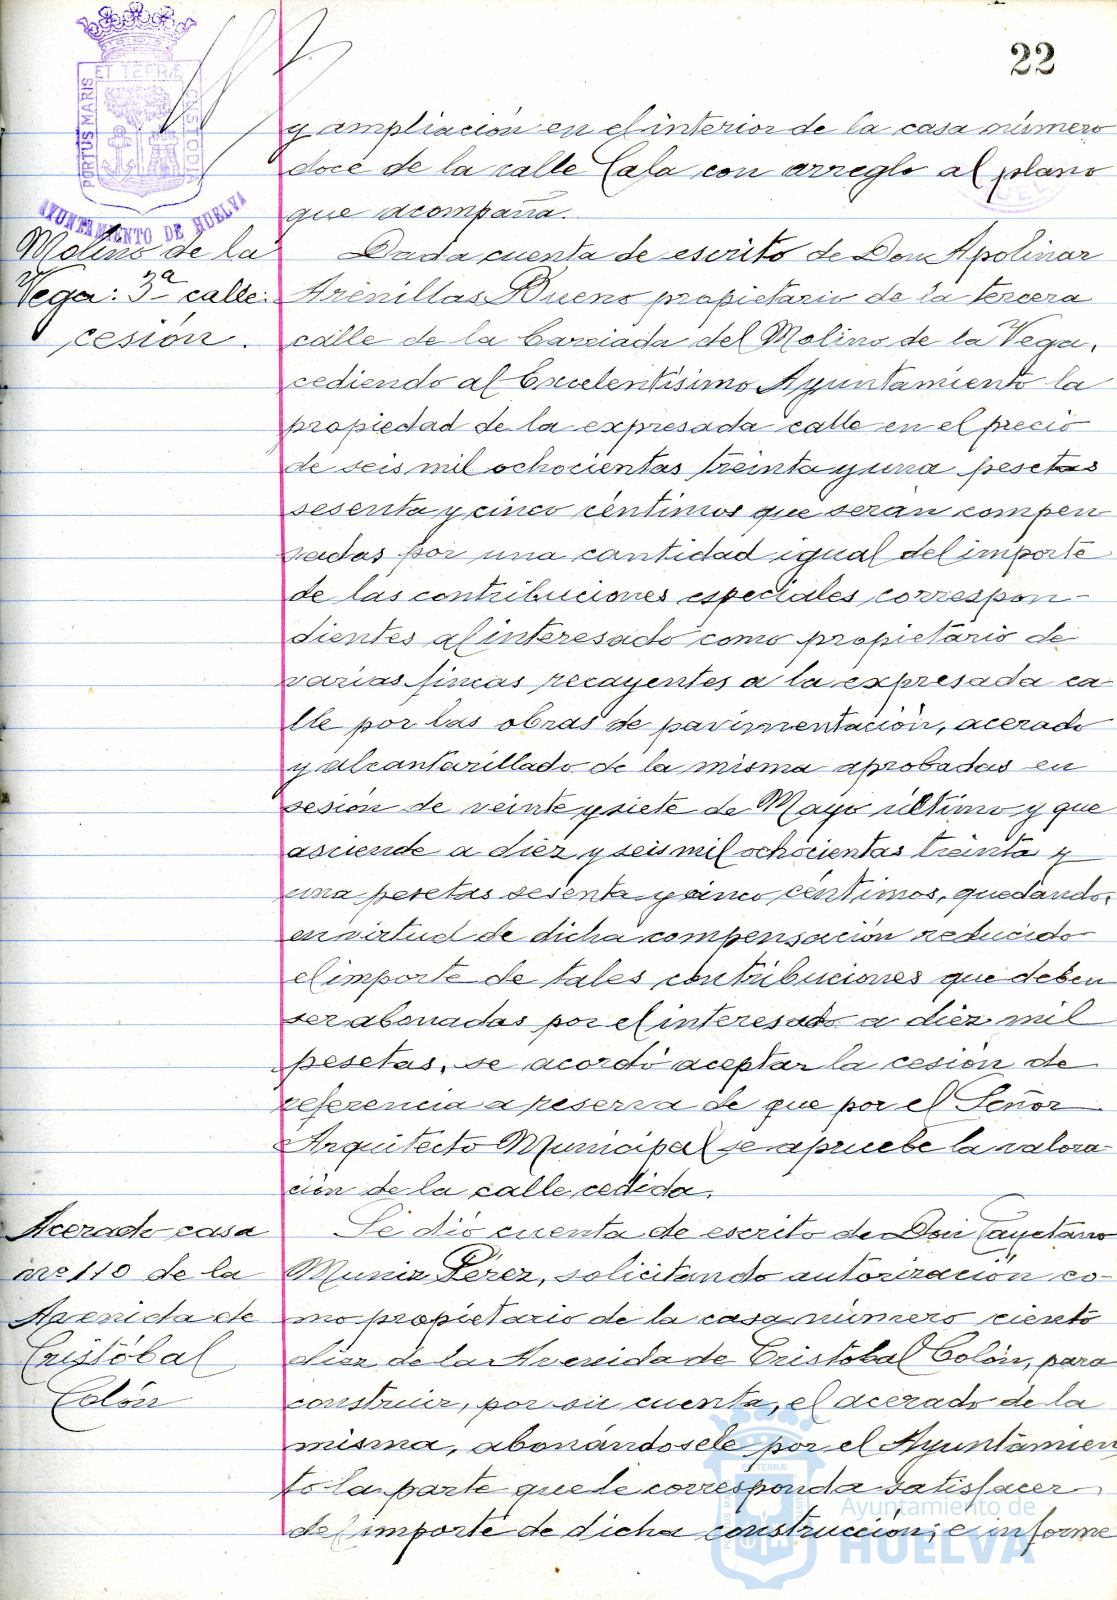 22
PORTUS MARIS
ET TERRÆ
CUSTODIA
AYUNTAMIENTO DE HUELVA
y ampliación en el interior de la casa número
doce de la calle Cala con arreglo al plano
que acompaña.
Molino de la
Vega: 3ª calle:
cesión.
Dada cuenta de escrito de Don Apolinar
Arenillas Bueno propietario de la tercera
calle de la barriada del Molino de la Vega,
cediendo al Excelentísimo Ayuntamiento la
propiedad de la expresada calle en el precio
de seis mil ochocientas treinta y una pesetas
sesenta y cinco céntimos que serán compen
sadas por una cantidad igual del importe
de las contribuciones especiales correspon-
dientes al interesado como propietario de
varias fincas recayentes a la expresada ca-
lle por las obras de pavimentación, acerado
y alcantarillado de la misma aprobadas en
sesión de veinte y siete de Mayo último y que
asciende a diez y seis mil ochocientas treinta y
una pesetas sesenta y cinco céntimos, quedando,
en virtud de dicha compensación reducido
el importe de tales contribuciones que deben
ser abonadas por el interesado a diez mil
pesetas, se acordó aceptar la cesión de
referencia a reserva de que por el Señor
Arquitecto Municipal se apruebe la valora-
ción de la calle cedida.
Acerado casa
nº 110 de la
Avenida de
Cristóbal
Colón
Se dió cuenta de escrito de Don Cayetano
Muniz Pérez, solicitando autorización co-
mo propietario de la casa número ciento
diez de la Avenida de Cristóbal Colón, para
construir, por su cuenta, el acerado de la
misma, abonándosele por el Ayuntamien
to la parte que le corresponda satisfacer
del importe de dicha construcción; e informe
Ayuntamiento de
HUELVA